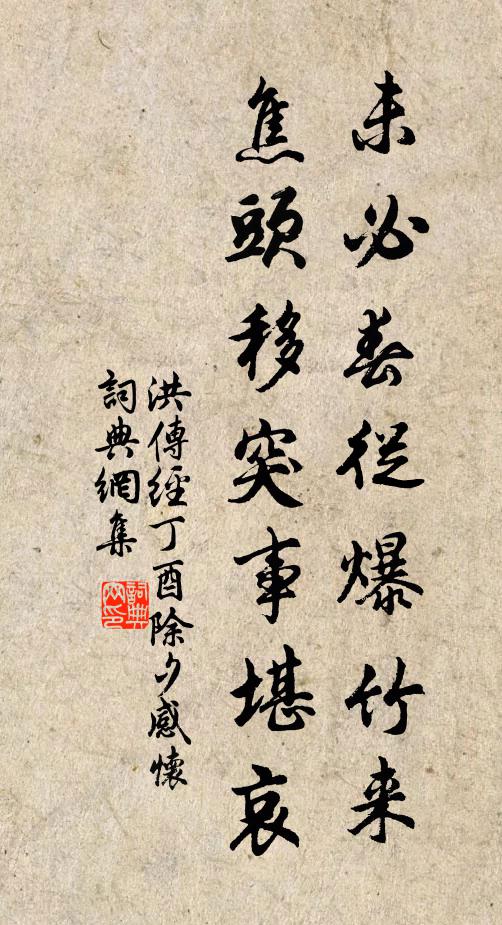 未必春從爆竹来
焦頭移突事堪哀
洪傳經丁酉除夕感懷
詞典網集
詞典
网印